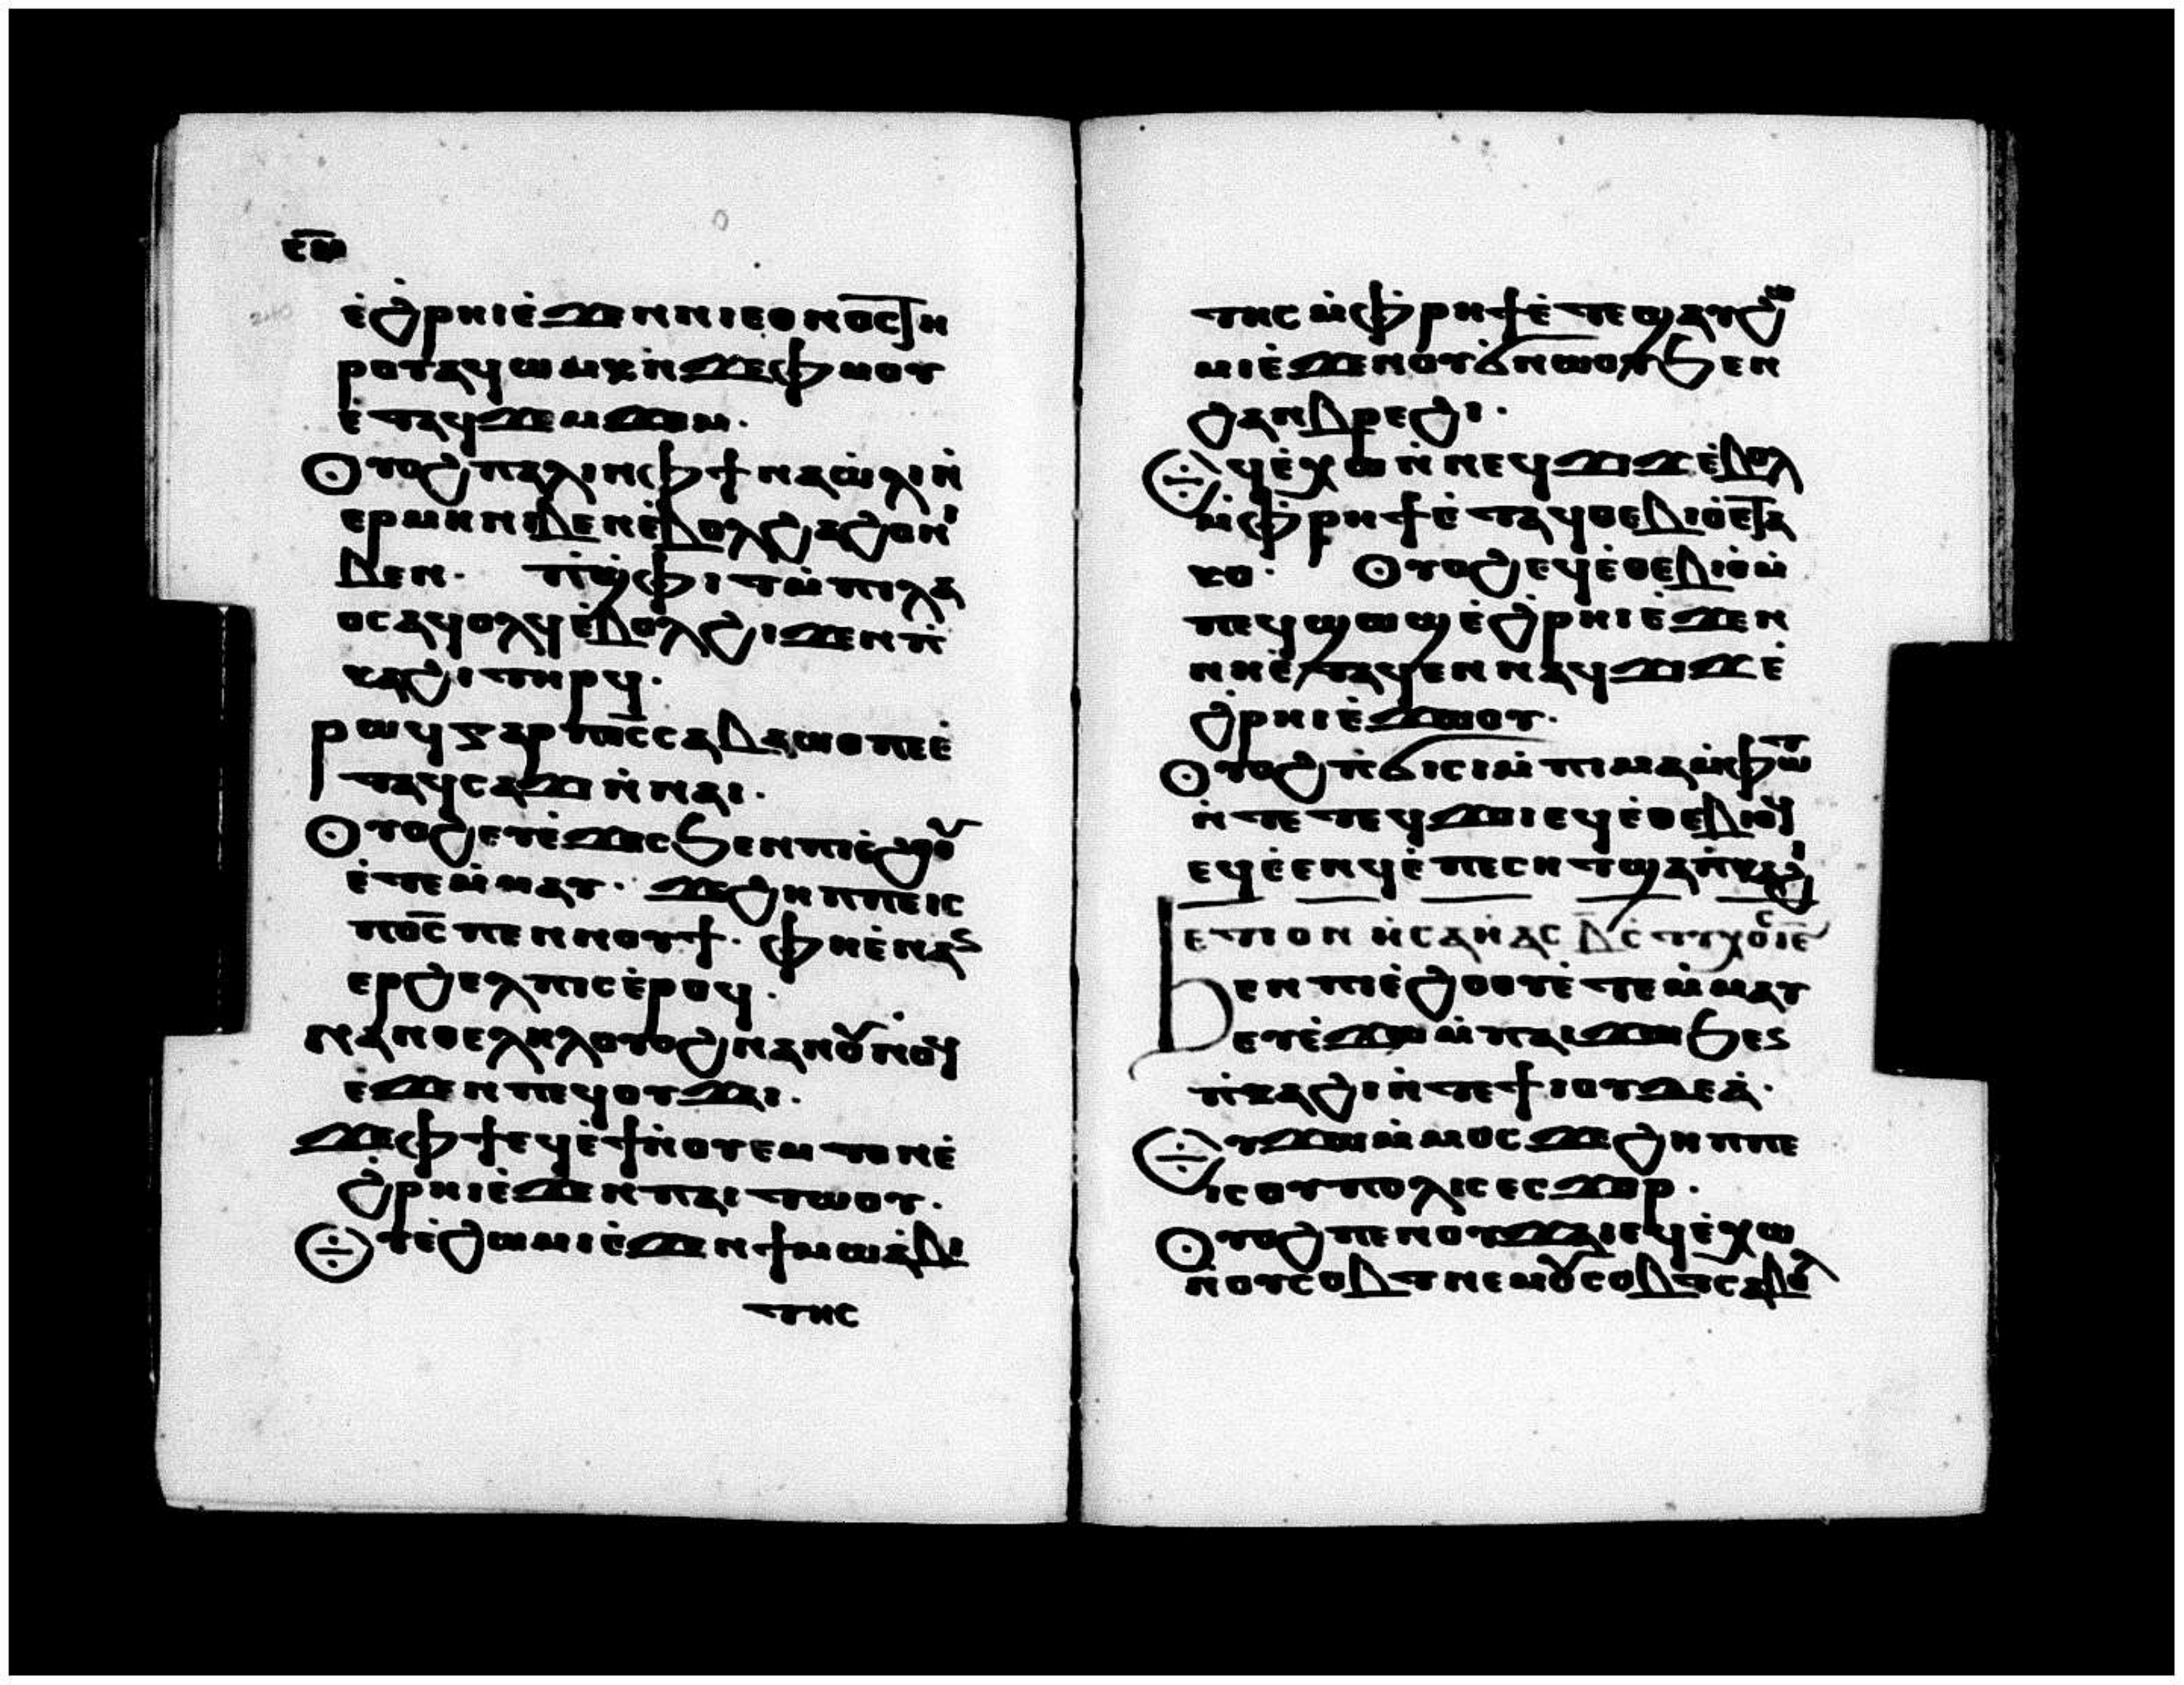 ⲥ̅ⲙ̅
ⲉ̇ϩ̇ⲣⲏⲓⲉ̇ϫⲉⲛⲛⲓⲉⲑⲛⲟⲥⲧⲏ
ⲣⲟⲩⲁϥⲱⲙⲕⲛ̇ϫⲉⲫⲙⲟⲩ
ⲉ̇ⲧⲁϥϫⲉⲙϫⲟⲙ.
Ⲟⲩⲟϩⲡⲁⲗⲓⲛⲫϯⲛⲁⲱ̇ⲗⲓⲛ̇
ⲉⲣⲙⲏⲛⲓⲃⲉⲛⲉ̇ⲃⲟⲗϩⲁϩⲟⲛⲓ
ⲃⲉⲛ. ⲡ̇ϣ̇ⲫⲓⲧⲙ̇ⲡⲓⲗⲁ
ⲟⲥⲁϥⲟⲗϥⲉ̇ⲃⲟⲗϩⲓϫⲉⲛⲡ̇
ⲕⲁϩⲓⲧⲏⲣϥ.
ⲣⲱϥⲅⲁⲣⲡⲟ̅ⲥ̅ⲥⲁⲃⲁⲱⲑⲡⲉⲉ̇
ⲧⲁϥⲥⲁϫⲓⲛ̇ⲛⲁⲓ.
Ⲟⲩⲟϩⲉⲩⲉ̇ϫⲟⲥϧⲉⲛⲡⲓⲉ̇ϩⲟⲩ
ⲉ̇ⲧⲉⲙ̇ⲙⲁⲩ. ϫⲉϩⲏⲡⲡⲉⲓⲥ
ⲡⲟ̅ⲥ̅ⲡⲉⲛⲛⲟⲩϯ. ⲫⲏⲉ̇ⲛⲁⲛ
ⲉⲣϩⲉⲗⲡⲓⲥⲉ̇ⲣⲟϥ.
ⲛⲁⲛⲑⲉⲗⲏⲗⲟⲩⲟϩⲛⲁⲛⲟⲩⲛⲟϥ
ⲉ̇ϫⲉⲛⲡⲉϥⲟⲩϫⲁⲓ.
ϫⲉⲫϯⲉϥⲉ̇ϯⲛ̇ⲟⲩⲉⲙⲧⲟⲛⲉ̇
ϩ̇ⲣⲏⲓⲉ̇ϫⲉⲛⲡⲁⲓⲧⲱⲟⲩ.
Ⲉⲩⲉ̇ϩⲱⲙⲓⲉ̇ϫⲉⲛϯⲙⲱⲁ̇ⲃⲓ
ⲧⲏⲥ
ⲧⲏⲥⲙ̇ⲫ̇ⲣⲏϯⲉ̇ⲧⲉϣⲁⲩϩⲱ
ⲙⲓⲉ̇ϫⲉⲛⲟⲩϭ̇ⲛⲱⲟⲩϧⲉⲛ
ϩⲁⲛⲃⲣⲉϩⲓ.
Ⲉϥⲉ̇ⲭⲱⲛ̇ⲛⲉϥϫⲓϫⲉ̇ⲃⲟⲗ
ⲙ̇ⲫ̇ⲣⲏϯⲉ̇ⲧⲁϥⲑⲉⲃⲓⲟⲉ̇ⲧⲁ
ⲕⲟ. Ⲟⲩⲟϩⲉϥⲉ̇ⲑⲉⲃⲓⲟⲙ̇
ⲡⲉϥϣⲱϣⲉ̇ϩ̇ⲣⲏⲓⲉ̇ϫⲉⲛ
ⲛⲏⲉ̇ⲧⲁϥⲉⲛⲛⲁϥϫⲓϫⲉ̇
ϩ̇ⲣⲏⲓⲉ̇ϫⲱⲟⲩ.
Ⲟⲩⲟϩⲡ̇ϭⲓⲥⲓⲙ̇ⲡⲓⲙⲁⲙ̇ⲫⲱⲧ
ⲛ̇ⲧⲉⲧⲉϥϫⲟⲓⲉϥⲉ̇ⲑⲉⲃⲓⲟϥ
ⲉϥⲉ̇ⲉⲛϥⲉ̇ⲡⲉⲥⲏⲧϣⲁⲡ̇ⲕⲁϩⲓ
ⲉⲧⲓⲟⲛ ⲏ̇ⲥⲁⲏ̇ⲁⲥ ⲃ̅ ⲥ̇ⲧⲩⲭⲟⲥ ⲓ̅ⲉ̅
ϧⲉⲛⲡⲓⲉ̇ϩⲟⲟⲩⲉ̇ⲧⲉⲙ̇ⲙⲁⲩ
ⲉⲩⲉ̇ϫⲱⲙ̇ⲡⲁⲓϫⲱϧⲉⲛ
ⲡ̇ⲕⲁϩⲓⲛ̇ⲧⲉϯⲓⲟⲩⲇⲉⲁ̇.
Ⲉⲩϫⲱⲙ̇ⲙⲟⲥϫⲉϩⲏⲡⲡⲉ
ⲓⲥⲟⲩⲡⲟⲗⲓⲥⲉⲥϫⲟⲣ.
Ⲟⲩⲟϩⲡⲉⲛⲟⲩϫⲁⲓⲉϥⲉ̇ⲭⲱ
ⲛ̇ⲟⲩⲥⲟⲃⲧⲛⲉⲙⲟⲩⲥⲟⲃⲧⲥⲁⲃⲟⲗ